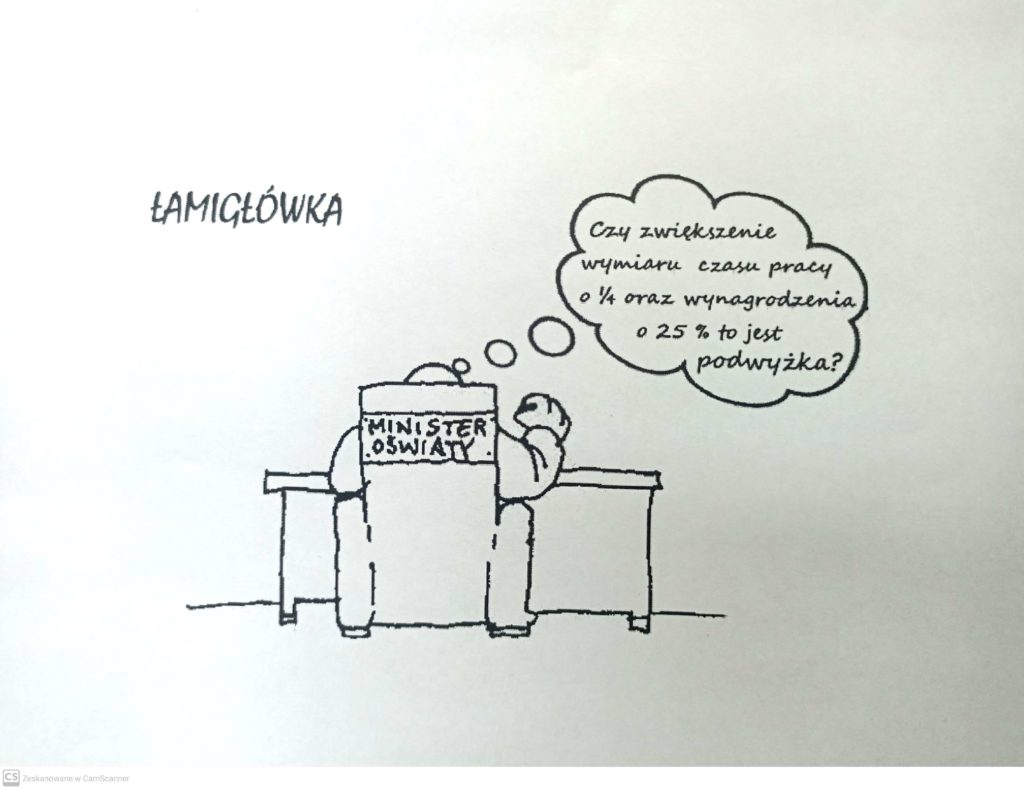 ŁAMIGŁÓWKA
Czy zwiększenie
wymiaru czasu pracy
o ¼ oraz wynagrodzenia
o 25 % to jest
podwyżka?
MINISTER
OŚWIATY
CS Zeskanowane w CamScanner